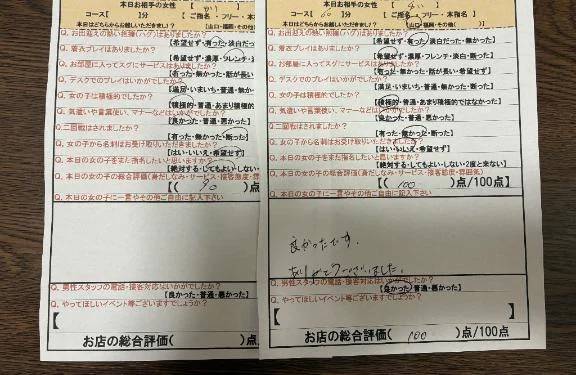 本日お相手の女性
コース【 】分 【 ご指名 ・ フリー ・ 本指名
本日はどちらからお越しいただきましたか？
Q. お出迎えの熱い抱擁(ハグ)はありましたか？
【希望せず・有った・淡白だっ
Q. 着衣プレイはありましたか？
【希望せず・濃厚・フレンチ・
Q. お部屋に入ってスグにサービスはありましたか？
【有った・無かった・話が長い
Q. デスクでのプレイはいかがでしたか？
【満足・いまいち・普通・無か
Q. 女の子は積極的でしたか？
【積極的・普通・あまり積極的
Q. 気遣いや言葉使い、マナーなどはいかがでしたか？
【良かった・普通・悪かった】
Q. 二回戦はされましたか？
【有った・無かった・断った】
Q. 女の子から名刺はお受け取りいただきましたか？
【はい・いいえ・希望せず】
Q. 本日の女の子をまた指名したいと思いますか？
【絶対する・してもよい・しない・
Q. 本日の女の子の総合評価(身だしなみ・サービス・接客態度・雰
【( 90 )点
Q. 本日の女の子に一言やその他ご自由に記入下さい
Q. 男性スタッフの電話・接客対応はいかがでしたか？
【良かった・普通・悪かった】
Q. やってほしいイベント等ございますでしょうか？
【
お店の総合評価( )点
本日お相手の女性
コース【 60 】分 【 ご指名 ・ フリー ・ 本指名
本日はどちらからお越しいただきましたか？ (山口・福岡・その他( ))
Q. お出迎えの熱い抱擁(ハグ)はありましたか？
【希望せず・有った・淡白だった・無かった】
Q. 着衣プレイはありましたか？
【希望せず・濃厚・フレンチ・淡白・断った】
Q. お部屋に入ってスグにサービスはありましたか？
【有った・無かった・話が長い・希望せず】
Q. デスクでのプレイはいかがでしたか？
【満足・いまいち・普通・無かった・断った】
Q. 女の子は積極的でしたか？
【積極的・普通・あまり積極的ではなかった】
Q. 気遣いや言葉使い、マナーなどはいかがでしたか？
【良かった・普通・悪かった】
Q. 二回戦はされましたか？
【有った・無かった・断った】
Q. 女の子から名刺はお受け取りいただきましたか？
【はい・いいえ・希望せず】
Q. 本日の女の子をまた指名したいと思いますか？
【絶対する・してもよい・しない・2度と来ない】
Q. 本日の女の子の総合評価(身だしなみ・サービス・接客態度・雰囲気)
【( 100 )点/100点】
Q. 本日の女の子に一言やその他ご自由に記入下さい
良かったです。
ありがとうございました。
Q. 男性スタッフの電話・接客対応はいかがでしたか？
【良かった・普通・悪かった】
Q. やってほしいイベント等ございますでしょうか？
【 】
お店の総合評価( 100 )点/100点